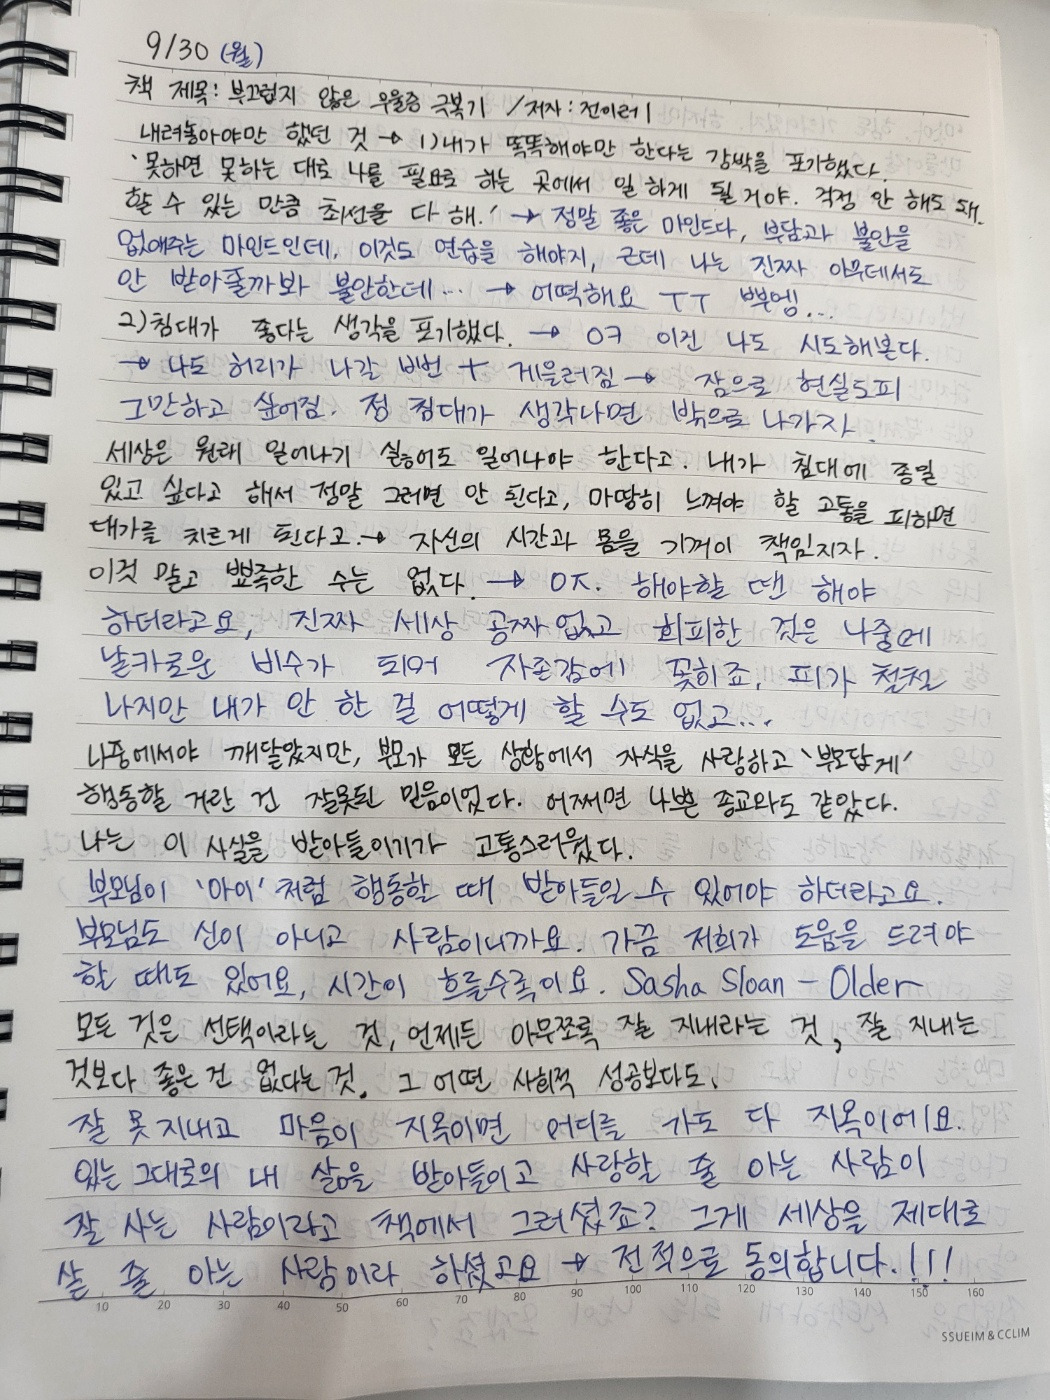 9/30 (월)
책 제목: 부끄럽지 않은 우울증 극복기 / 저자: 전이러
내려놓아야만 했던 것 → 1) 내가 똑똑해야만 한다는 강박을 포기했다.
'못하면 못하는 대로 나를 필요로 하는 곳에서 일하게 될거야. 걱정 안 해도 돼.
할 수 있는 만큼 최선을 다 해.' → 정말 좋은 마인드다, 부담과 불안을
없애주는 마인드인데, 이것도 연습을 해야지, 근데 나는 진짜 아무데서도
안 받아줄까봐 불안한데... → 어떡해요 ㅜㅜ 뿌엥...
2) 침대가 좋다는 생각을 포기했다. → ㅇㅋ 이건 나도 시도해본다.
→ 나도 허리가 나갈 뻔 + 게을러짐 → 잠으로 현실도피
그만하고 싶어짐. 정 침대가 생각나면 밖으로 나가자.
세상은 원래 일어나기 싫어도 일어나야 한다고. 내가 침대에 종일
있고 싶다고 해서 정말 그러면 안 된다고, 마땅히 느껴야 할 고통을 피하면
대가를 치르게 된다고. → 자신의 시간과 몸을 기꺼이 책임지자.
이것 말고 뾰족한 수는 없다. → OK. 해야할 땐 해야
하더라고요, 진짜 세상 공짜 없고 회피한 것은 나중에
날카로운 비수가 되어 자존감에 꽂히죠, 피가 철철
나지만 내가 안 한 걸 어떻게 할 수도 없고...
나중에서야 깨달았지만, 부모가 모든 상황에서 자식을 사랑하고 '부모답게'
행동할 거란 건 잘못된 믿음이었다. 어쩌면 나쁜 종교와도 같았다.
나는 이 사실을 받아들이기가 고통스러웠다.
부모님이 '아이'처럼 행동할 때 받아들일 수 있어야 하더라고요.
부모님도 신이 아니고 사람이니까요. 가끔 저희가 도움을 드려야
할 때도 있어요, 시간이 흐를수록이요. Sasha Sloan - Older
모든 것은 선택이라는 것, 언제든 아무쪼록 잘 지내라는 것, 잘 지내는
것보다 좋은 건 없다는 것. 그 어떤 사회적 성공보다도.
잘 못 지내고 마음이 지옥이면 어디를 가도 다 지옥이에요.
있는 그대로의 내 삶을 받아들이고 사랑할 줄 아는 사람이
잘 사는 사람이라고 책에서 그러셨죠? 그게 세상을 제대로
살 줄 아는 사람이라 하셨고요 → 전적으로 동의합니다.!!!
10 20 30 40 50 60 70 80 90 100 110 120 130 140 150 160
SSUEIM & CCLIM